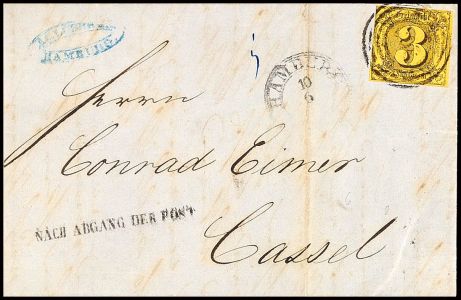 HAMBURG.
HAMBURG
10
6
3
Herrn
Conrad Eimer
NACH ABGANG DER POST
Cassel